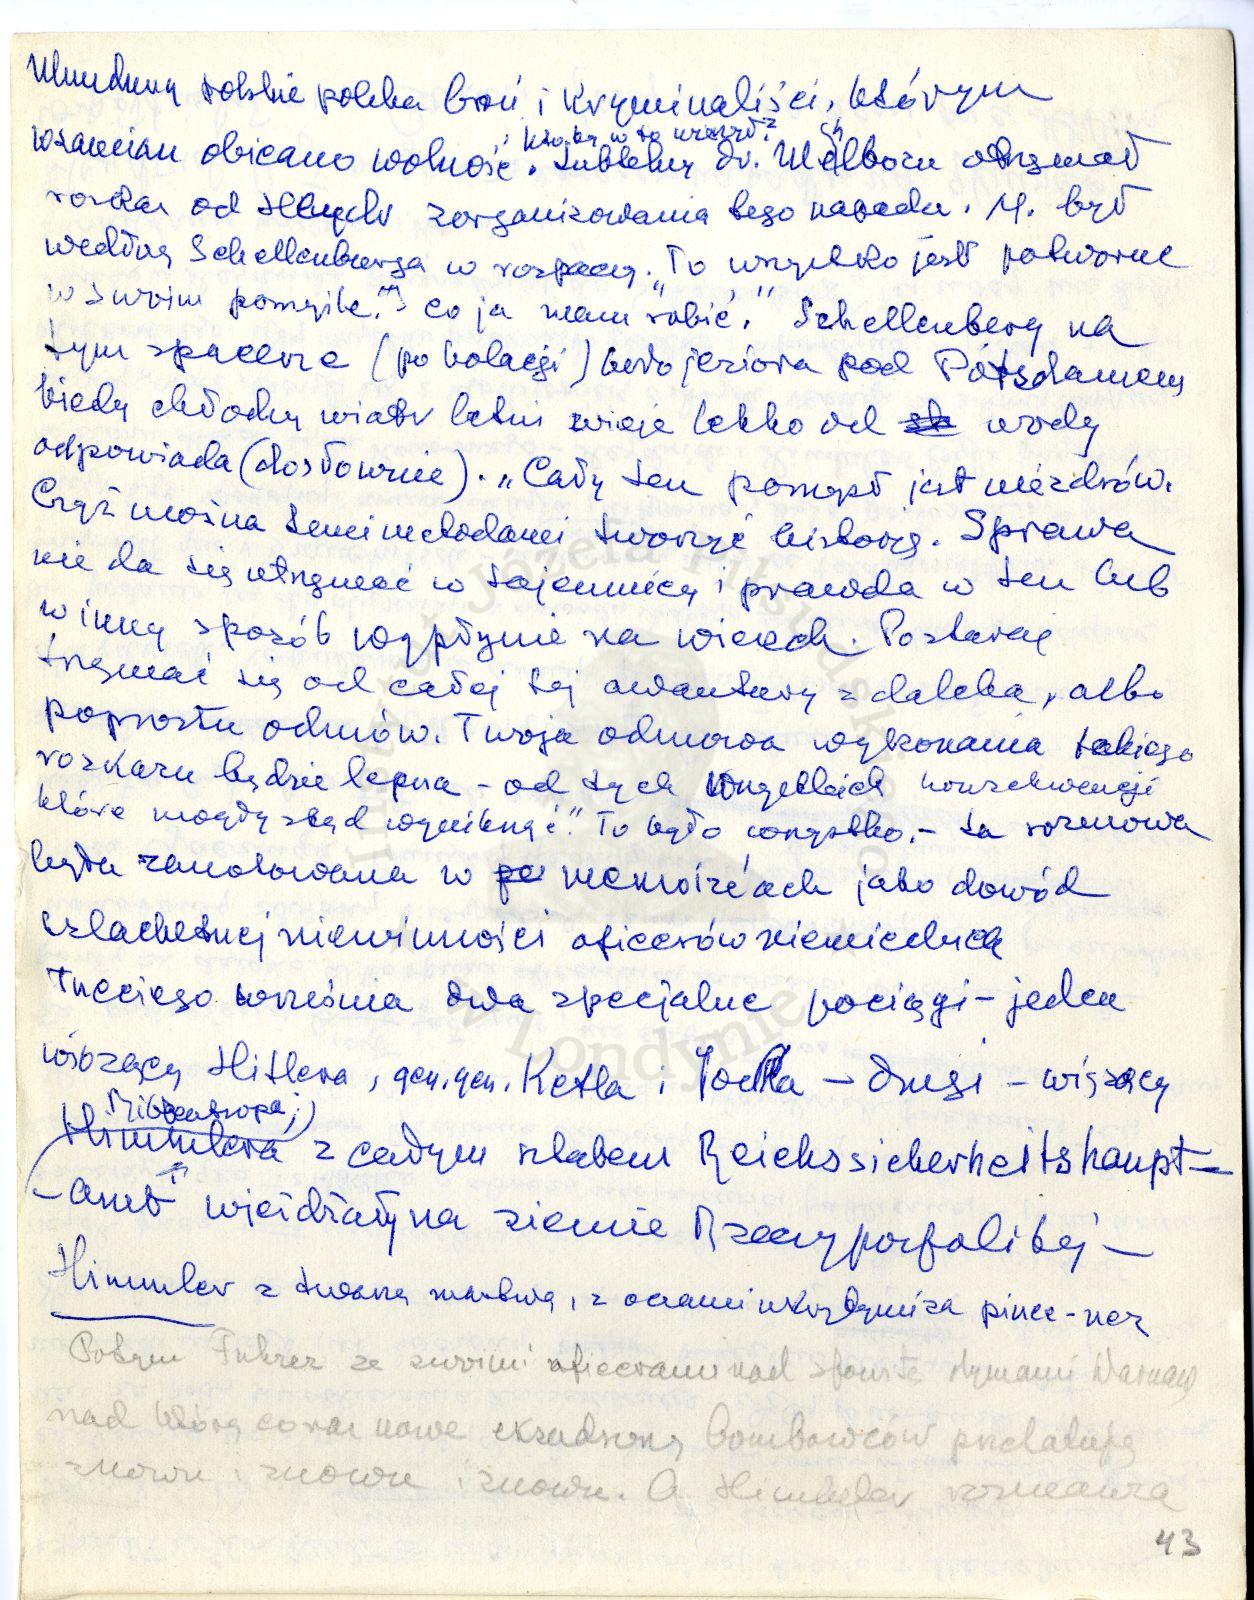 Mundury polskie polska broń i kryminaliści, którym
wzamian obiecano wolność. , kto by w to wierzył? Subtelny dr. Mehlborn otrzymał
rozkaz od zorganizowania tego napadu. M. był
według Schellenberga w rozpaczy. "To wszystko jest potworne
w swoim pomyśle." Co ja mam robić." Schellenberg na
tym spacerze (po kolacji) koło jeziora pod Potsdamem
kiedy chłodny wiatr letni wieje lekko od wody
odpowiada (dosłownie). "Cały ten pomysł jest
Czyż można temi metodami tworzyć historię. Sprawa
nie da się utrzymać w tajemnicy i prawda w ten lub
w inny sposób wypłynie na wierzch. Postaraj
trzymać się od całej tej awantury zdaleka, albo
poprostu odmów. Twoja odmowa wykonania takiego
rozkazu będzie lepsza - od tych wszystkich konsekwencji
które mogły stąd wyniknąć." To było wszystko. - ta rozmowa
była zanotowana w memoirach jako dowód
szlachetnej niewinności oficerów niemieckich
Trzeciego września dwa specjalne pociągi - jeden
wiozący Hitlera, gen. gen. Ketla i Jodla - drugi - wiozący
Ribbentropa i
Himmlera z całym sztabem Reichssicherheitshaupt-
-amt wjeżdżały na ziemie Rzeczypospolitej -
Himmler z twarzą martwą, z oczami ukrytymi za pince-nez
Potem Führer ze swoimi oficerami nad spowitą dymami Warszawą
nad którą coraz nowe eskadry bombowców przelatują
znowu i znowu i znowu. A Himmler rozmawia
43
Instytut Józefa Piłsudskiego
w Londynie